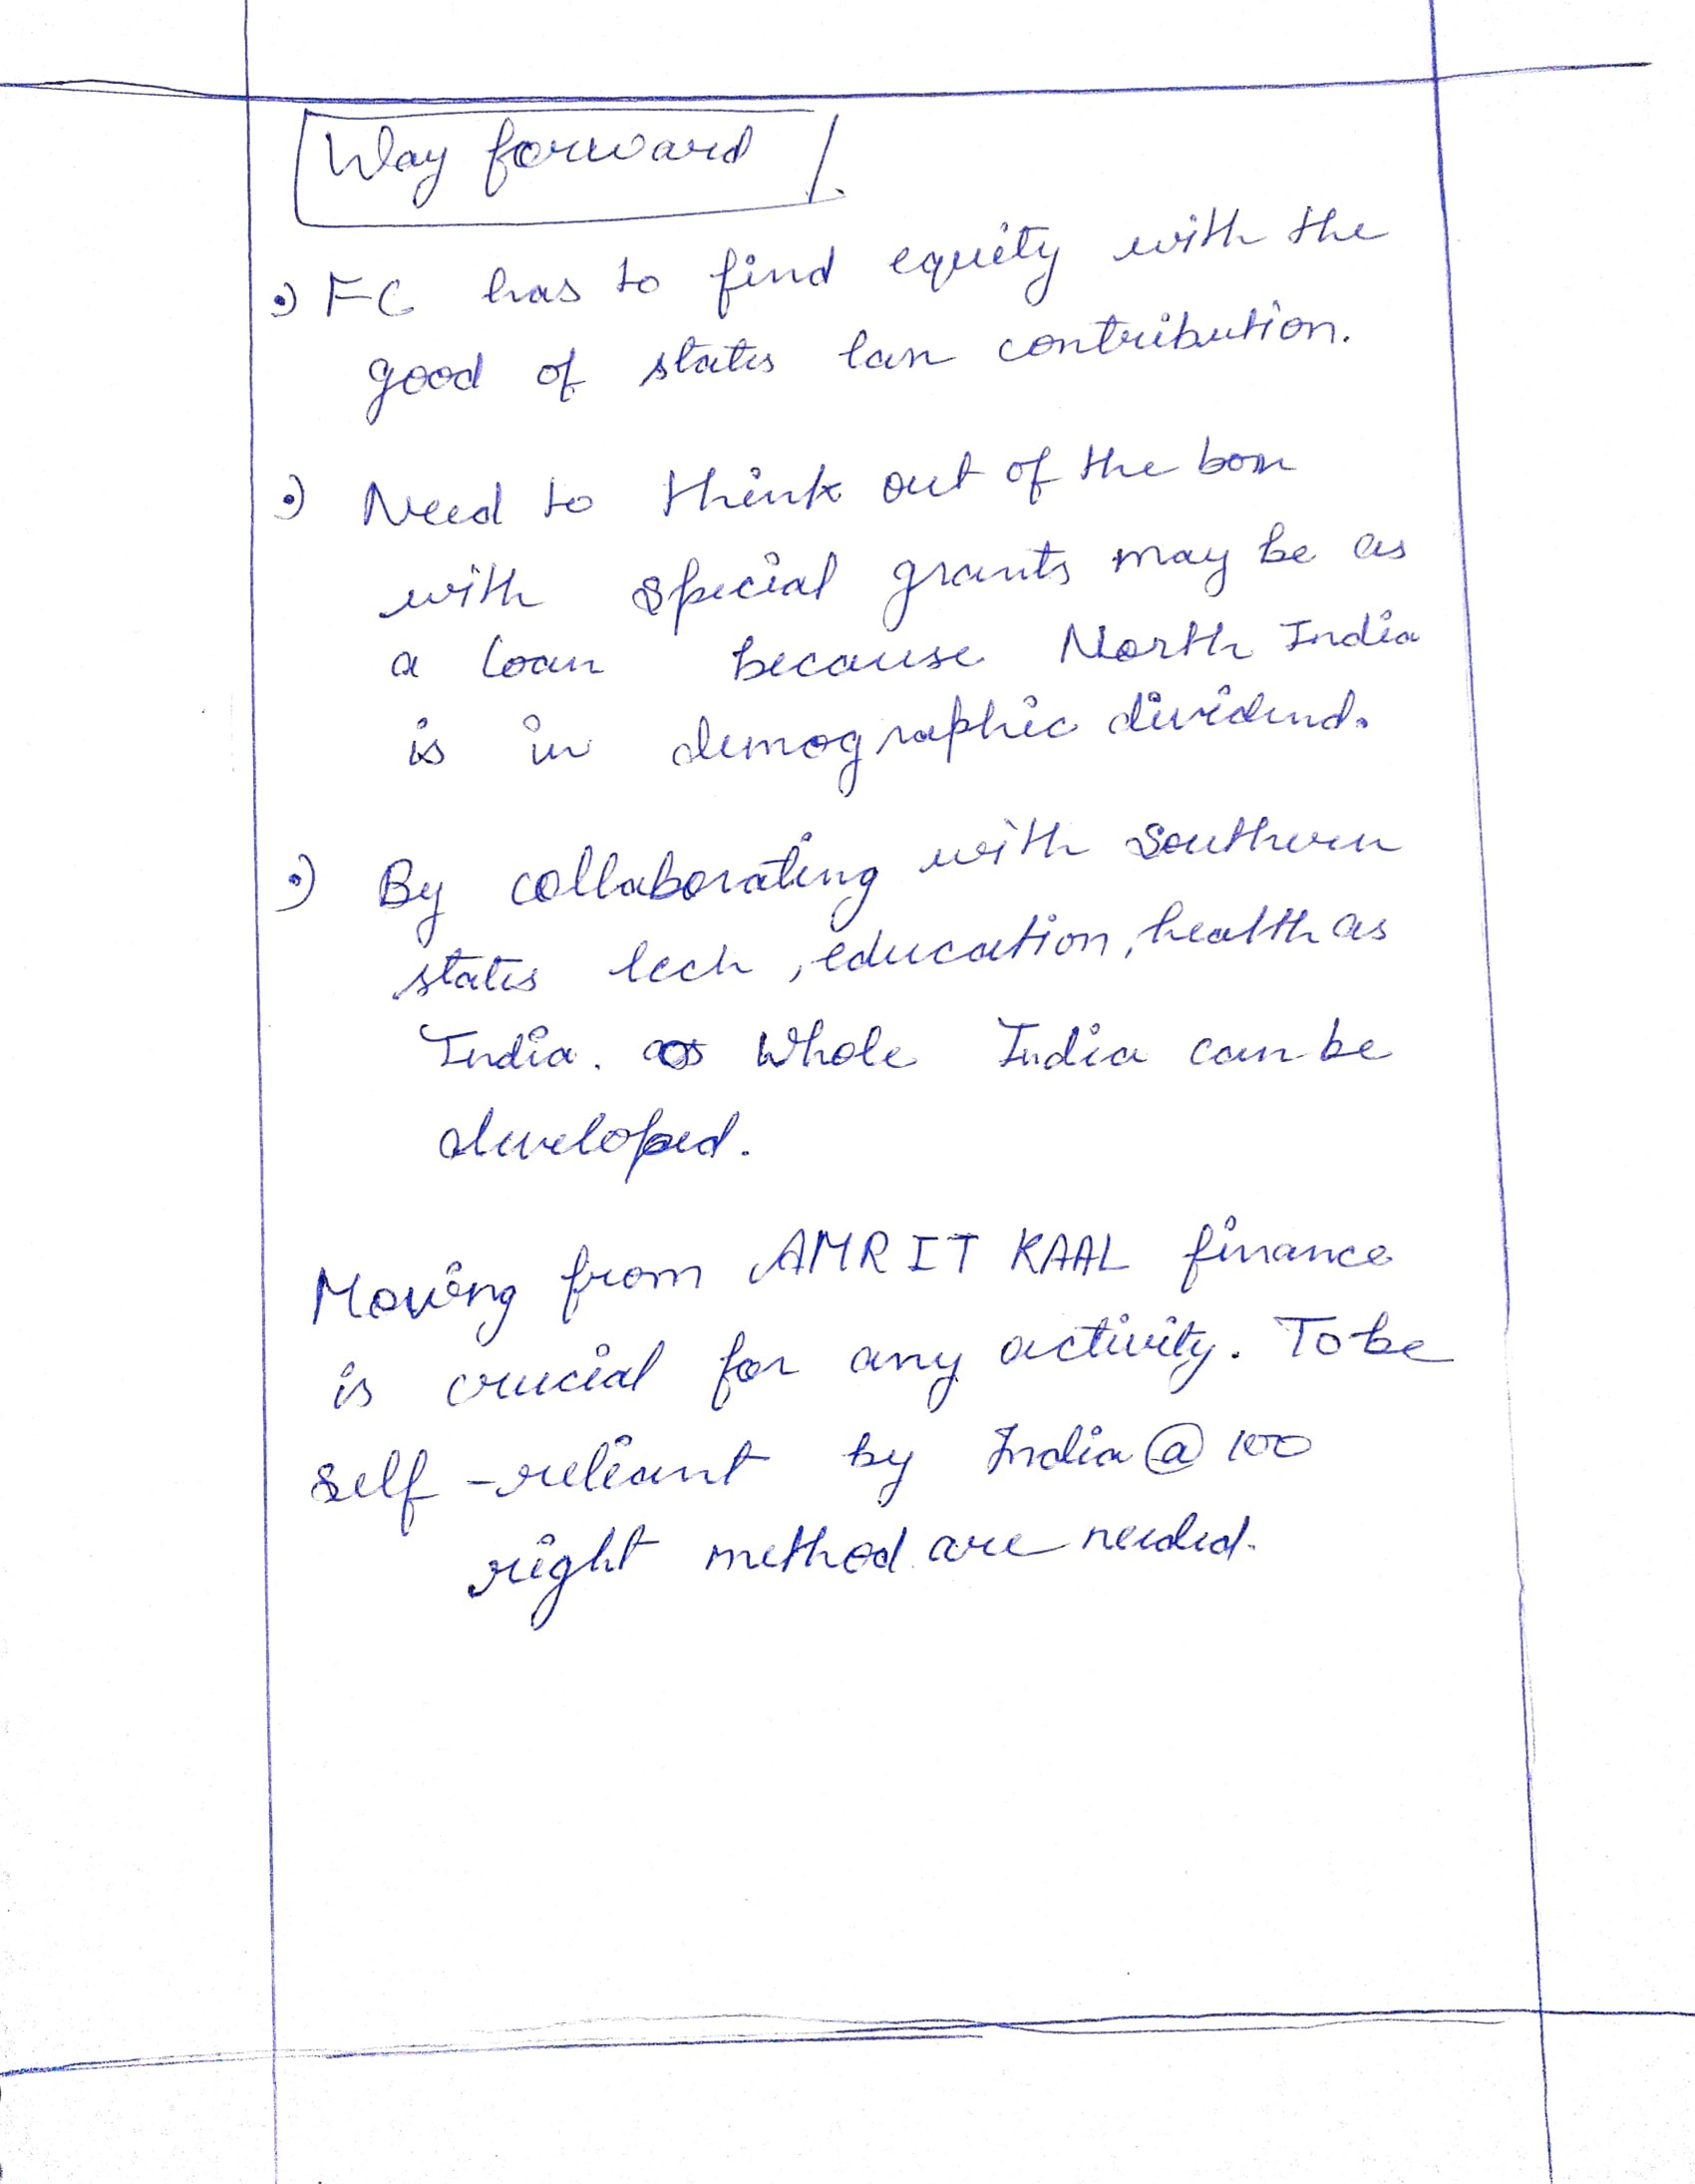 Way forward
FC has to find equity with the
good of states tax contribution.
Need to think out of the box
with special grants may be as
a loan because North India
is in demographic dividend.
By collaborating with Southern
states tech, education, health as
India. as Whole India can be
developed.
Moving from AMRIT KAAL finance
is crucial for any activity. To be
self-reliant by India @ 100
right method are needed.